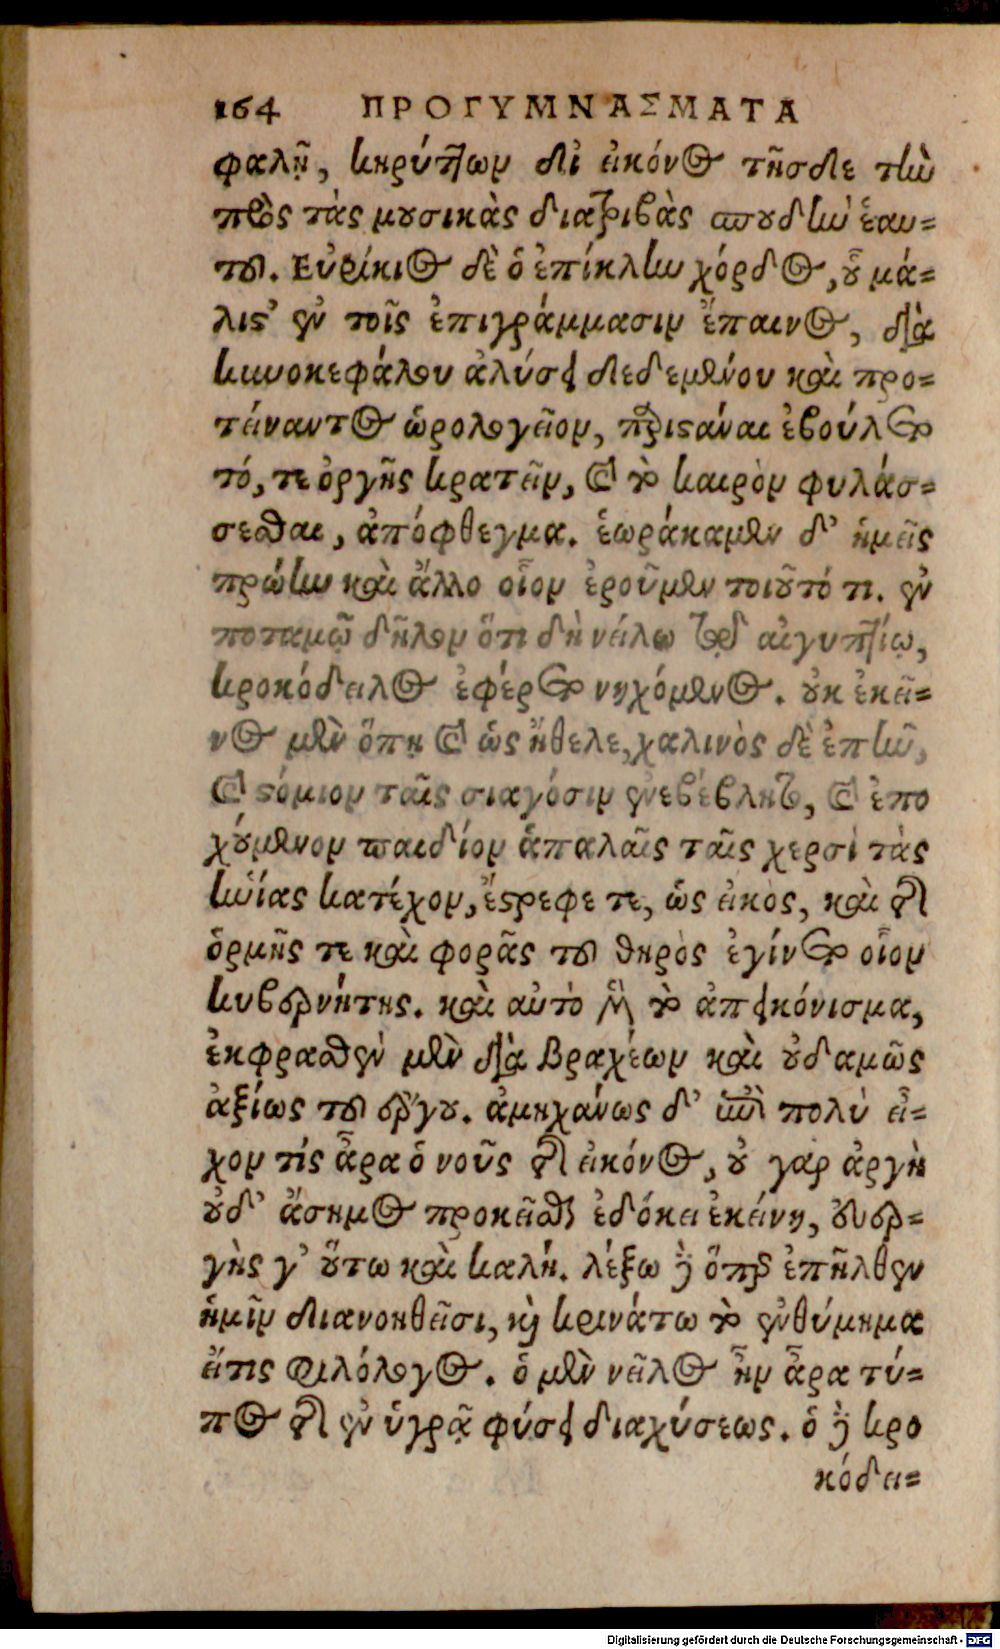 164 ΠΡΟΓΥΜΝΑΣΜΑΤΑ
φαλῇ, κηρύττων δι' εἰκόνος τῆσδε τὴν
πρὸς τὰς μουσικὰς διατριβὰς σπουδὴν ἑαυ-
τοῦ. Εὐρίκιος δὲ ὁ ἐπίκλην χόρδος, οὗ μά-
λιστ' ἐν τοῖς ἐπιγράμμασιν ἔπαινος, διὰ
κυνοκεφάλου ἀλύσει δεδεμένου καὶ προ-
τείναντος ὡρολογεῖον, παριστάναι ἐβούλετο
τό, τε ὀργῆς κρατεῖν, καὶ τὸ καιρὸν φυλάσ-
σεσθαι, ἀπόφθεγμα. ἑωράκαμεν δ' ἡμεῖς
πρώην καὶ ἄλλο οἷον ἐροῦμεν τοιοῦτό τι. ἐν
ποταμῷ δῆλον ὅτι δὴ νείλῳ τῷδ αἰγυπτίῳ,
κροκόδειλος ἐφέρετο νηχόμενος. οὐκ ἐκεῖ-
νος μὲν ὅπῃ καὶ ὡς ἤθελε, χαλινὸς δὲ ἐπῆν,
καὶ στόμιον ταῖς σιαγόσιν ἐνεβέβλητο, καὶ ἐπο
χούμενον παιδίον ἁπαλαῖς ταῖς χερσὶ τὰς
ἡνίας κατέχον, ἔστρεφε τε, ὡς εἰκος, καὶ τῆς
ὁρμῆς τε καὶ φορᾶς τοῦ θηρὸς ἐγίνετο οἷον
κυβερνήτης. καὶ αὐτὸ μὲν τὸ ἀπεικόνισμα,
ἐκφρασθὲν μὲν διὰ βραχέων καὶ οὐδαμῶς
ἀξίως τοῦ ἔργου. ἀμηχάνως δ' ἐπὶ πολὺ εἶ-
χον τίς ἆρα ὁ νοῦς τῆς εἰκόνος, οὐ γαρ ἀργὴ
οὐδ' ἄσημος προκεῖσθαι ἐδόκει ἐκείνη, οὖσ
γὴς γ' οὕτω καὶ καλή. λέξω δὲ ὅπερ ἐπῆλθεν
ἡμῖν διανοηθεῖσι, καὶ κρινάτω τὸ ἐνθύμημα
εἴτις φιλόλογος. ὁ μὲν νεῖλος ἦν ἆρα τύ-
πος τῆς ἐν ὑγρᾷ φύσει διαχύσεως. ὁ δὲ κρο
κόδει-
Digitalisierung gefördert durch die Deutsche Forschungsgemeinschaft - DFG